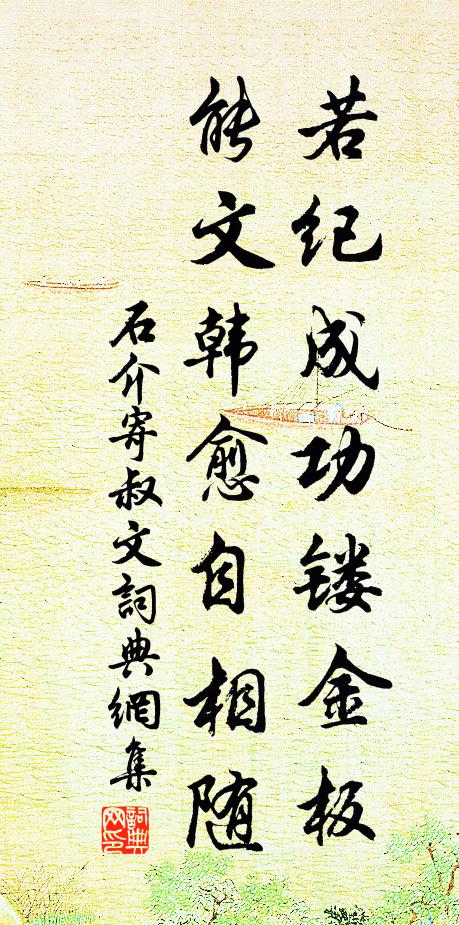 若纪成功镂金板
能文韩愈自相随
石介寄叔文詞典網集
詞典
网印